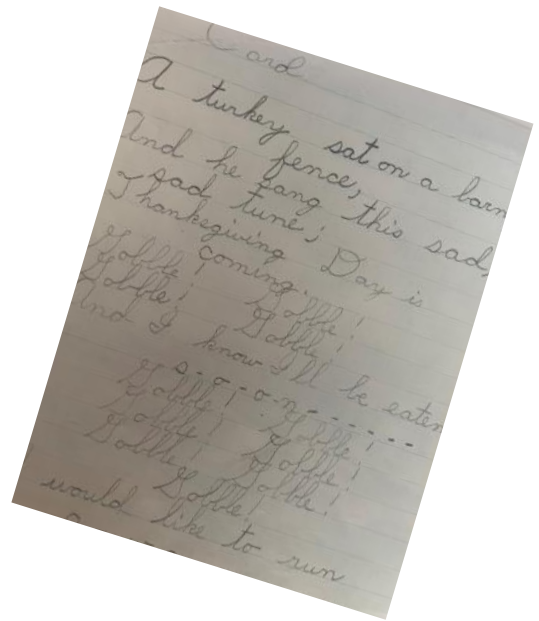 Card
A turkey sat on a barn
fence,
And he sang this sad,
sad tune;
Thanksgiving Day is
coming.
Gobble! Gobble!
Gobble! Gobble!
And I know I'll be eaten
s-o-o-n------
Gobble! Gobble!
Gobble! Gobble!
Gobble! Gobble!
Gobble!
would like to run